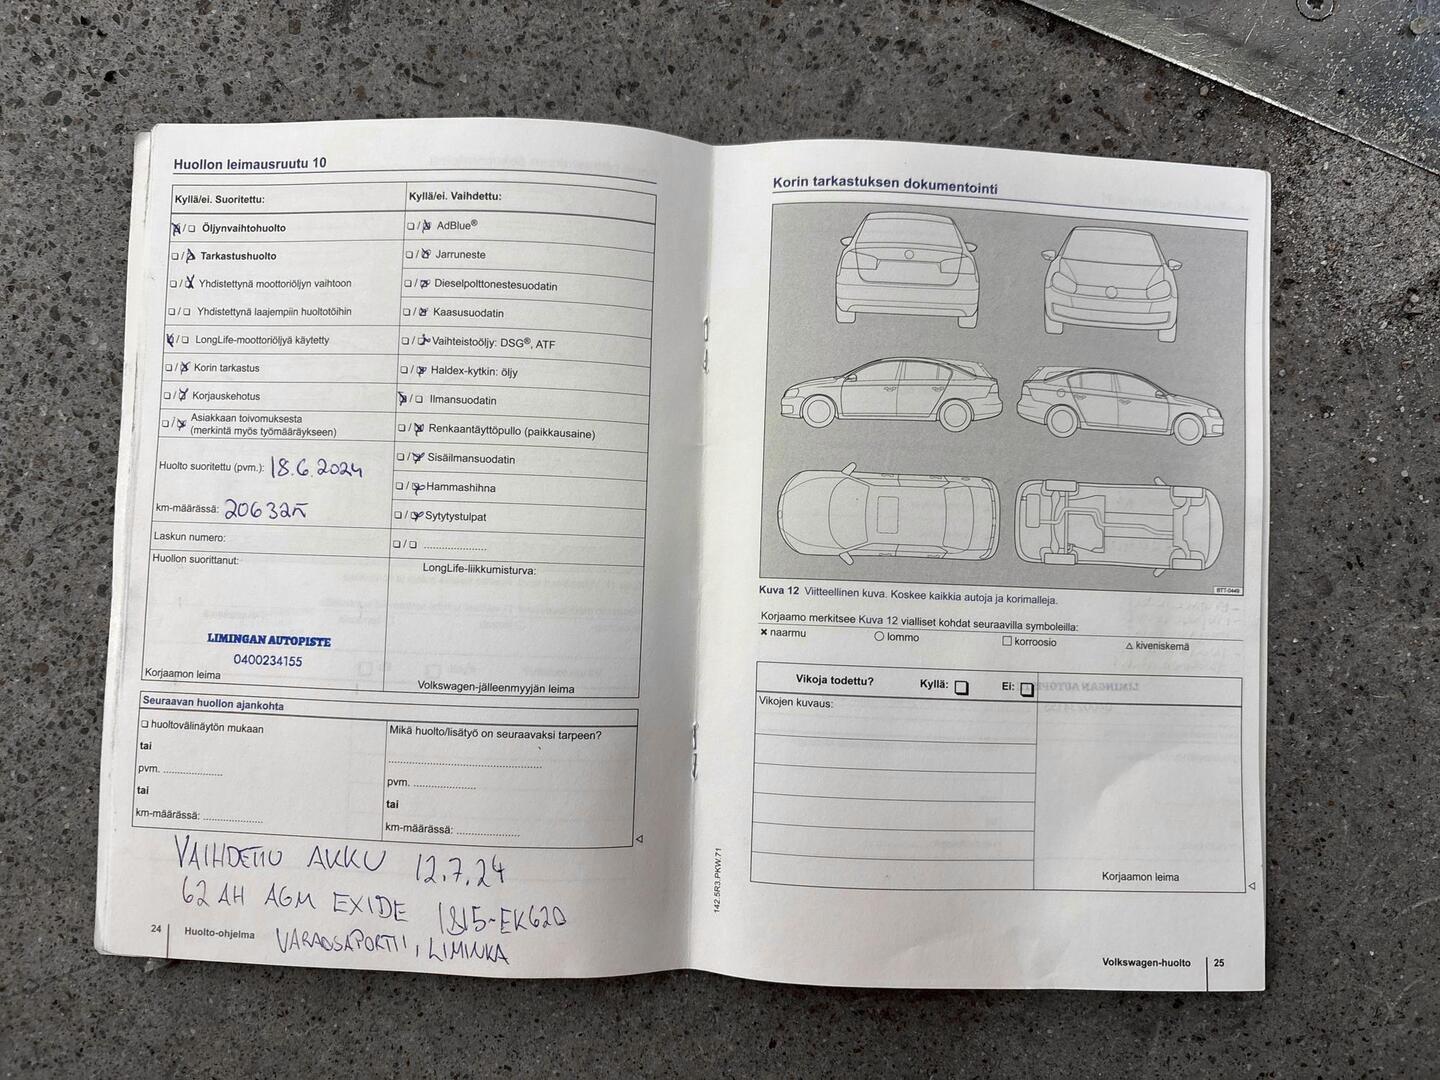 Huollon leimausruutu 10
Kyllä/ei. Suoritettu:
Öljynvaihtohuolto
Tarkastushuolto
Yhdistettynä moottoriöljyn vaihtoon
Yhdistettynä laajempiin huoltotöihin
LongLife-moottoriöljyä käytetty
Korin tarkastus
Korjauskehotus
Asiakkaan toivomuksesta
(merkintä myös työmääräykseen)
Huolto suoritettu (pvm.): 18.6.2024
km-määrässä:
Laskun numero:
Huollon suorittanut:
LIMINGAN AUTOPISTE
0400234155
Korjaamon leima
Kyllä/ei. Vaihdettu:
AdBlue®
Jarruneste
Dieselpolttonestesuodatin
Kaasusuodatin
Vaihteistoöljy: DSG®, ATF
Haldex-kytkin: öljy
Ilmansuodatin
Renkaantäyttöpullo (paikkausaine)
Sisäilmansuodatin
Hammashihna
Sytytystulpat
....................
LongLife-liikkumisturva:
Volkswagen-jälleenmyyjän leima
Seuraavan huollon ajankohta
huoltovälinäytön mukaan
tai
pvm. ...................
tai
km-määrässä: ...................
Mikä huolto/lisätyö on seuraavaksi tarpeen?
..................................................
pvm. ....................
tai
km-määrässä: ....................
VAIHDETTU AKKU 12.7.24
62 AH AGM EXIDE 1815-EK620
VARAOSAPORTTI, LIMINKA
24 Huolto-ohjelma
Korin tarkastuksen dokumentointi
BTT-0449
Kuva 12 Viitteellinen kuva. Koskee kaikkia autoja ja korimalleja.
Korjaamo merkitsee Kuva 12 vialliset kohdat seuraavilla symboleilla:
naarmu lommo korroosio kiveniskemä
Vikoja todettu? Kyllä: Ei:
Vikojen kuvaus:
Korjaamon leima
142.5R3.PKW.71
Volkswagen-huolto 25